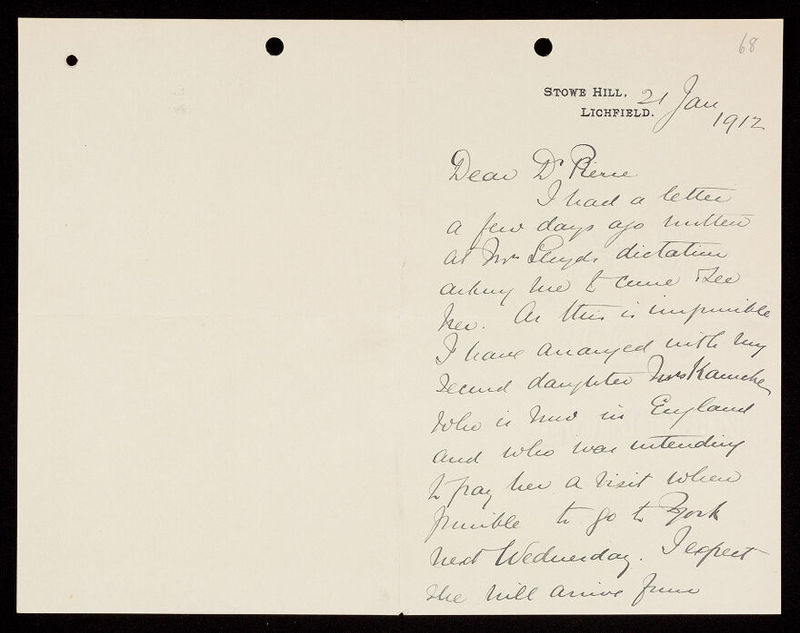 68
STOWE HILL,
LICHFIELD.
21 Jan
1912
Dear Dr Pierce
I had a letter
a few days ago written
at Mrs dictation
asking me to come & see
her. As this is impossible
I have arranged with my
second daughter Mrs
who is now in England
and who was intending
to pay her a visit when
possible to go to York
next Wednesday. I expect
she will arrive from